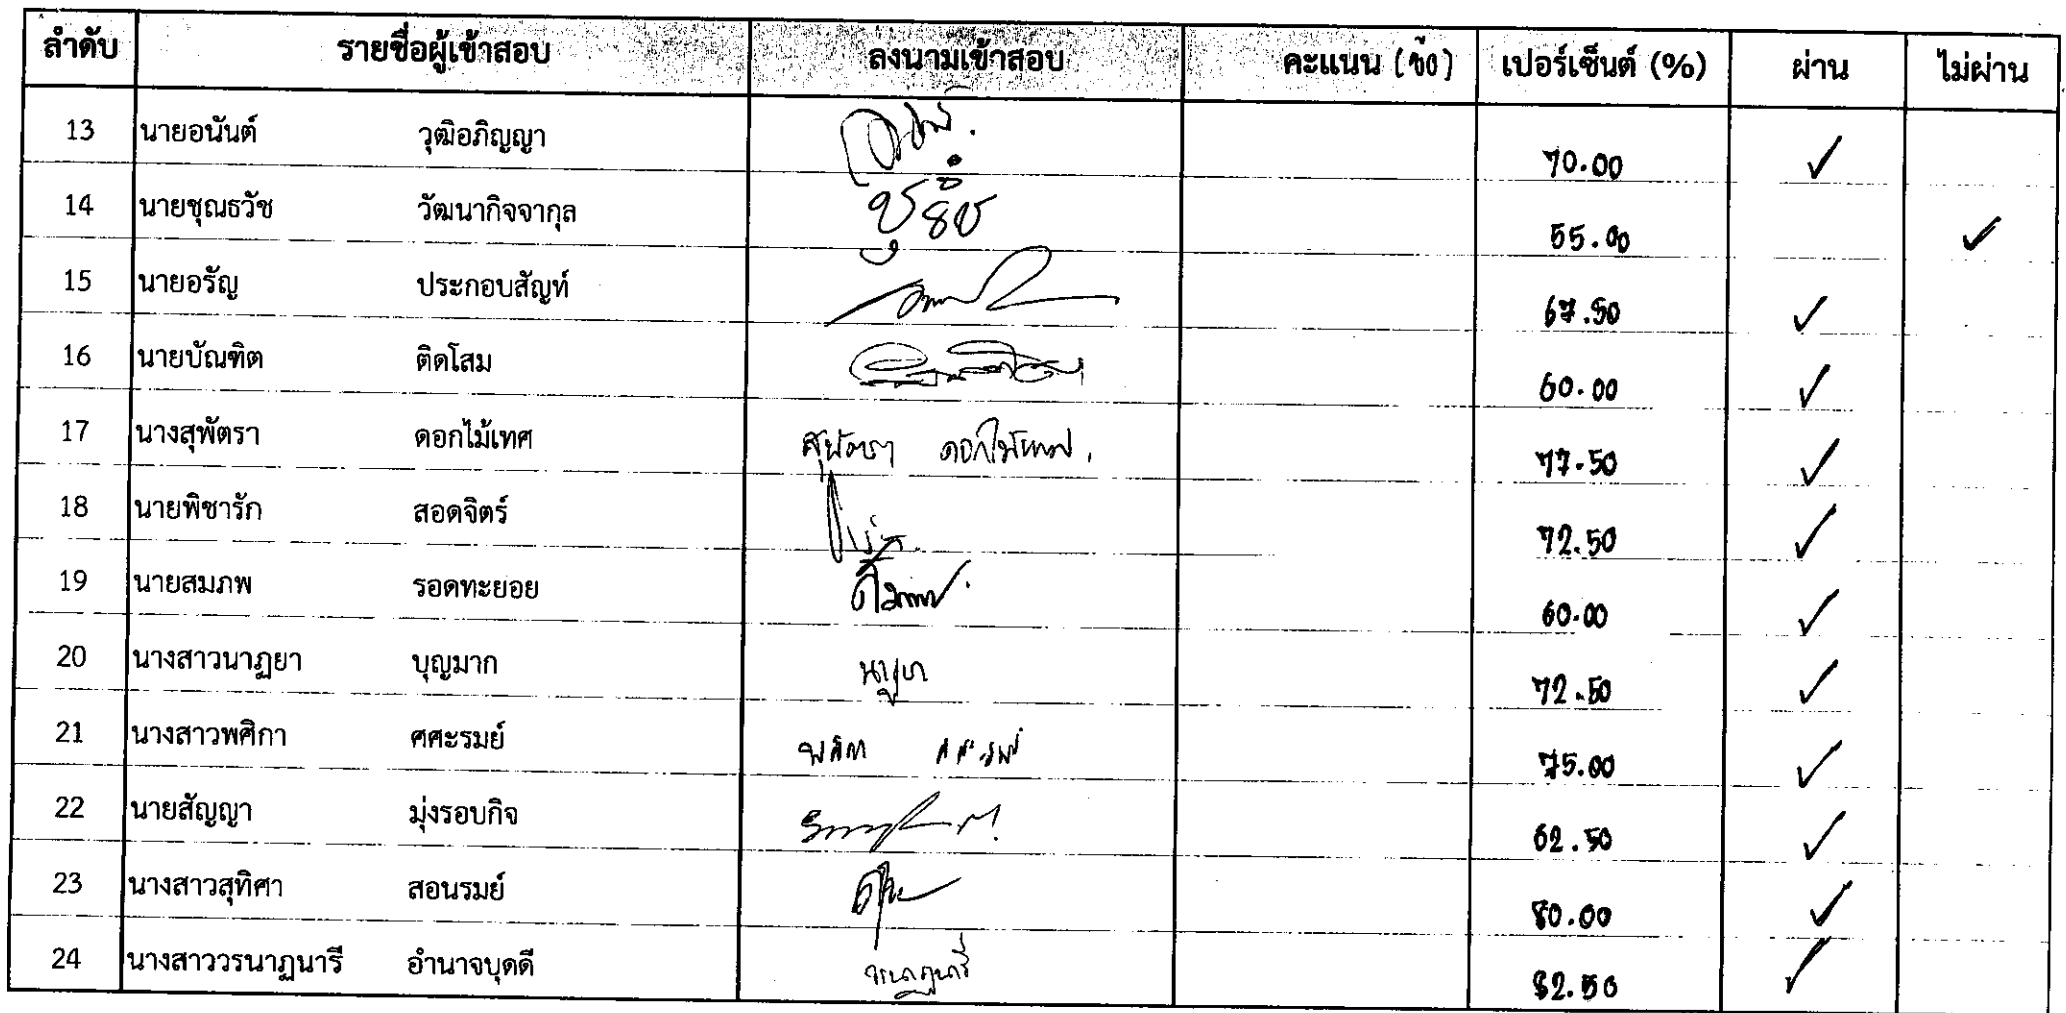 ลำดับ รายชื่อผู้เข้าสอบ ลงนามเข้าสอบ คะแนน (ข้อ) เปอร์เซ็นต์ (%) ผ่าน ไม่ผ่าน
13 นายอนันต์ วุฒิอภิญญา 70.00 ✓
14 นายชุณธวัช วัฒนากิจจากุล 55.00 ✓
15 นายอรัญ ประกอบสัญท์ 67.50 ✓
16 นายบัณฑิต ติดโสม 60.00 ✓
17 นางสุพัตรา ดอกไม้เทศ สุพัตรา ดอกไม้เทศ. 77.50 ✓
18 นายพิชารัก สอดจิตร์ 72.50 ✓
19 นายสมภพ รอดทะยอย 60.00 ✓
20 นางสาวนาฏยา บุญมาก 72.50 ✓
21 นางสาวพศิกา ศศะรมย์ พศิกา ศศะรมย์ 75.00 ✓
22 นายสัญญา มุ่งรอบกิจ 62.50 ✓
23 นางสาวสุทิศา สอนรมย์ 80.00 ✓
24 นางสาววรนาฏนารี อำนาจบุดดี วรนาฏนารี 82.50 ✓